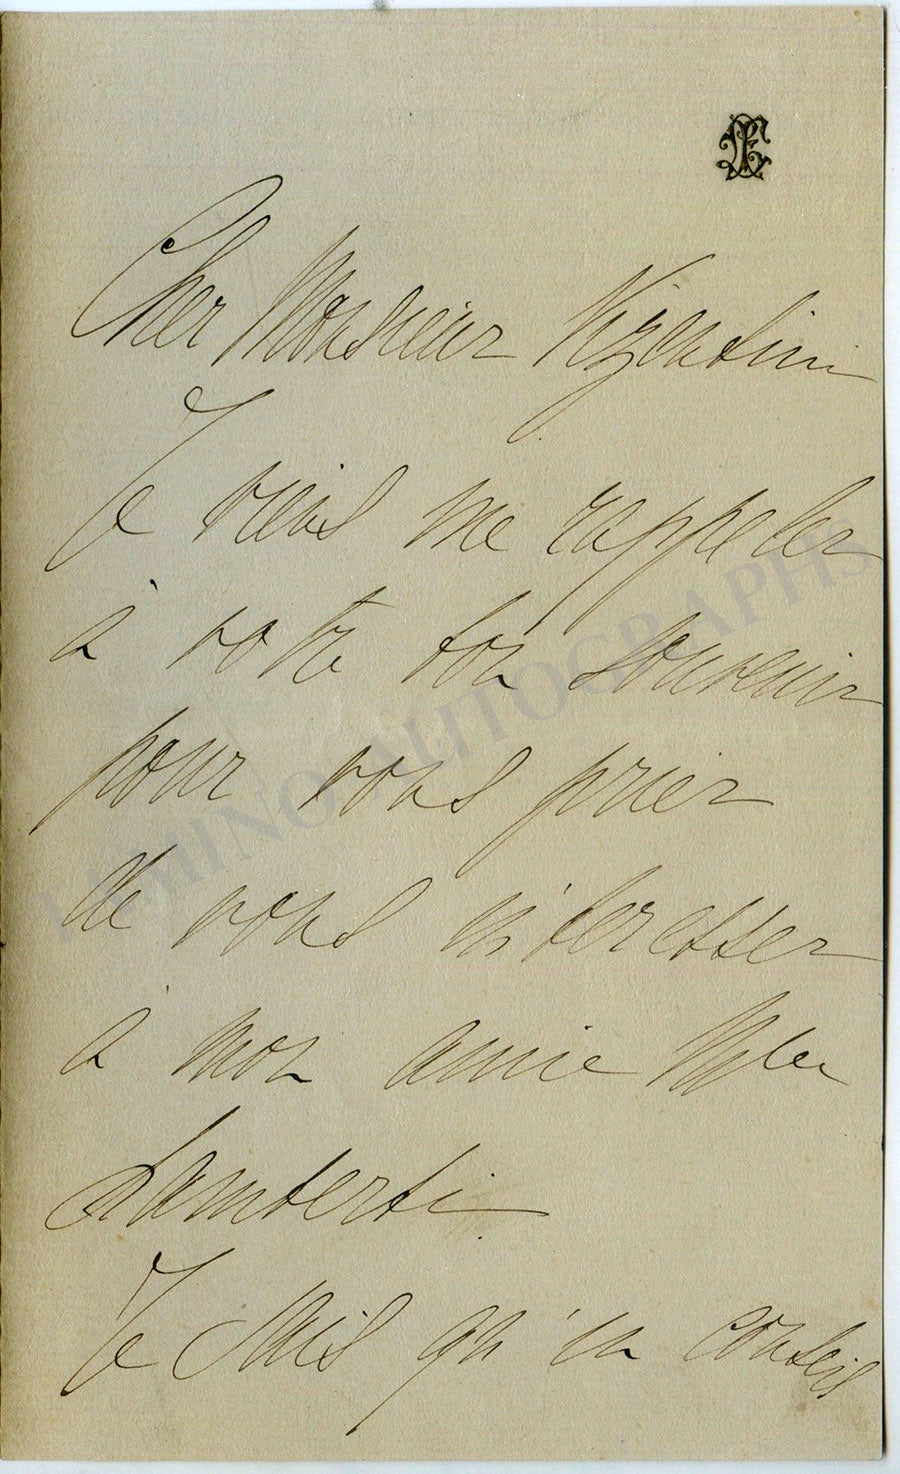 Cher Monsieur Vizentini
Je viens me rappeler
à votre bon souvenir
pour vous prier
de vous interesser
à mon amie Mlle
Lamberti
Je sais qu'un conseil
TAMINO AUTOGRAPHS